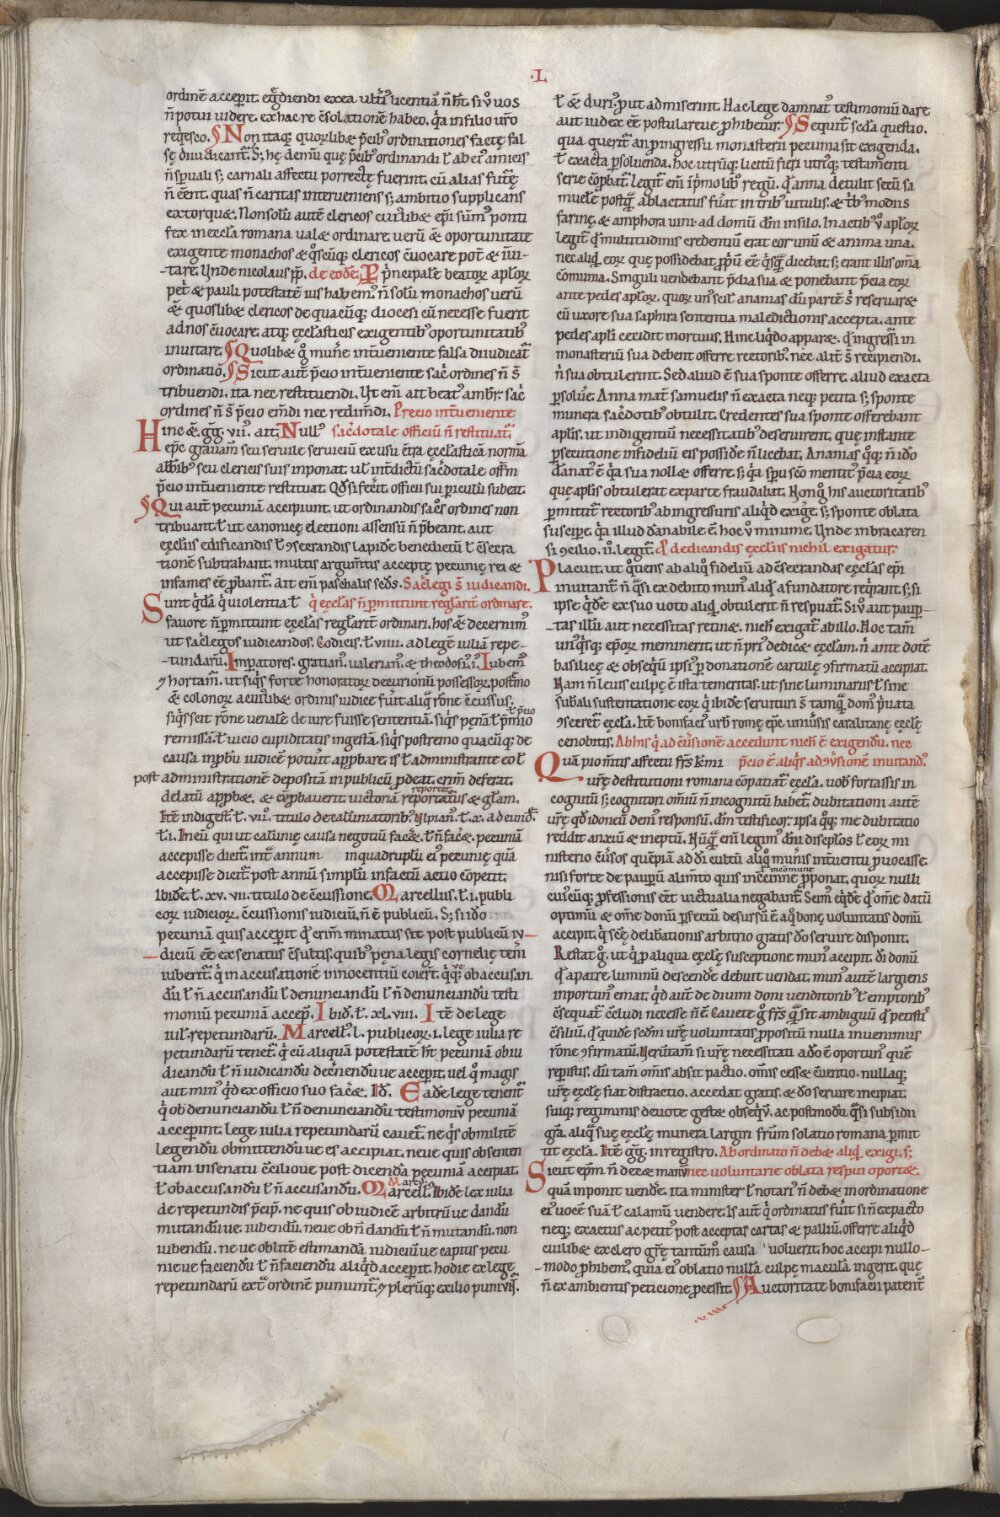 ·L·
ordinē acceperit. eg̃diendi ex ea ult̃i᷑ licentiā ñ h̃t. si ṽo uos
ñ potui videre. ex hac re c̄solationē habeo. q̇a in filio ur̃o
req̇esco. Non itaq; quorūlibæ p̄cib᷒ ordinationes factę fal
sę diiudicant᷑. S; hę demū quę p̄cib᷒ ordinandi ł ab ei᷒ amicis
ñ sp̄uali s; carnali affectu porrectę fuerint. cū alias futurę
ñ eēnt. quas ñ caritas interueniens s; ambitio supplicans
extorquæ. Non solū autē clericos cui᷒libæ ep̄i sūm᷒ ponti
fex in ęcc̄la romana ualæ ordinare. verū & oportunitate
exigente monachos & q̇scūq; clericos ēuocare pot̃ & inui-
-tare. Unde nicolaus pp̄. de eodē. Principale beatorꝝ apl̄oꝝ
petri & pauli potestatē ius habem᷒. ñ solū monachos verū
& quoslibæ clericos de quacūq; diocesi cū necesse fuerit
ad nos ēuocare. atq; ęcc̄lasticis exigentib᷒ oportunitatib᷒
inuitare. Quolibæ g̊ mun̄e int̃ueniente falsa diiudicat᷑
ordinatio. Sicut aut̄ p̄cio int̃ueniente sac̃i ordines ñ s̄
tribuendi. ita nec restituendi. Ut eni᷒ ait beat᷒ ambr̄. sac̃i
ordines ñ s̄ p̄cio emēdi nec redimēdi. Precio int̃ueniente
Hinc & gg. vii. ait. Null᷒ sac̃dotale officiū ñ restituat᷑.
ep̄c grauam̄ seu seruile seruiciū ex usu c̄tra ęcc̄lasticā normā
abb̄ib᷒ seu clericis suis inponat. uł int̃dictū sac̃dotale offm̄
p̄cio int̃ueniente restituat. Qḋ si fec̃it. officii sui p̄iculū subeat.
Qui aut̄ pecuniā accipiunt. ut ordinandis sac̃os ordines non
tribuant ł ut canonicę electioni assensū ñ p̄beant. aut
ęcc̄liis edificandis ł ꝯsecrandis lapidē benedictū ł c̄secra
tionē subtrahant. multis argumt̄is acceptę pecunię rei &
infames ēē p̄bant᷑. ait eni᷒ paschalis sc̄ds. Sac̃legi s̄ iudicandi.
Sunt q̇dā q̇ uiolentia ł q̇ ęcc̄las ñ p̄mittunt regłarit̃ ordinare.
fauore ñ p̄mittunt ęcc̄las regłarit̃ ordinari. hos & decernim᷒
ut sac̃legos iudicandos. Codicis. ł. viiii. ad legē iuliā repe-
-tundarū. Imperatores. gratian᷒. valerian᷒. & theodosi᷒. i᷒. Iubem᷒
ꝯ hortam᷒. ut siq̇s forte honoratoꝝ decurionū possessoꝝ. postmo
& colonoꝝ aut cui᷒libæ ordinis iudice fuit aliq̇ r̄one c̄cussus.
siq̇s scit r̄one uenalē de iure fuisse sententiā. siq̇s penā ł p̄mio
ł p̄cio
remissā ł uicio cupiditatis ingestā. siq̇s postremo quacūq; de
causa inp̄bū iudicē potuit᷑ app̄bare. is ł administrante eo ł
post administrationē depositā in publicū p̄deat. crim̄ deferat.
reportet᷑
delatū app̄bæ. & cū p̄bauerit. uictoriā reportatur᷒ & głam.
Itē indigest. ł. vii. titulo de calūniatorib᷒. ulpian᷒. ł. x. ad eund̄.
ł. i. In eū qui ut calūnię causa negotiū facææ. ł ñ facææ. pecuniā
accepisse dicit᷑. intᷓ annum inquadruplū ei᷒ pecunię quā
accepisse dicit᷑. post annū simplū in factū actio cōpetit.
Ibidē ł. xv. vii. titulo de c̄cussione. Marcellus. ł. i. publi
coꝝ iudicioꝝ. c̄cussionis iudiciū. ñ ē publicū. S; si idō
pecuniā quis accepit q̇ crim̄ minatus sit. post publicū iu-
-diciū eē ex senatus c̄sultis. quib᷒ pęna legis cornelię tenēi
iuberit᷑. q̇ in accusationē innocentiū coierit. q̇q; ob accusan
dū ł ñ accusandū ł denunciandū ł ñ denunciandū testi
moniū pecuniā accep̄. Ibid̄. ł. xl. viii. Itē de lege
iuł. repetundarū. Marcell᷒. ł. publicoꝝ. i. lege iulia re
petundarū tenet᷑. q̇ cū aliquā potestatē h̄t. pecuniā ob iu
dicandū ł ñ iudicandū decernendū ue accep̄it. uel q̊ magis
aut min᷒ q̇d ex officio suo facææ. Id̄. Eadē lege tenent᷑
q̇ ob denunciandū ł ñ denunciandū testimoniū pecuniā
acceperint. lege iulia repetundarū cauet᷑. ne q̇s ob militē
legendū ob mittendū ue es accipiat. neue quis ob senten
tiam in senatu c̄cilio ue post dicendā pecuniā accipiat.
ł ob accusandū ł ñ accusandū. Marcell᷒. Ibidē lex iulia
de repetundis p̄cip̄. ne quis ob iudicē arbitrū ue dandū
mutandū ue. iubendū. neue ob ñ dandū ł ñ mutandū. non
iubendū. ne ue ob litē estimandā. iudiciū ue capitis pecu
nię ue faciendū ł ñ faciendū aliq̇d accep̄it. hodie ex lege
repetundarū extᷓ ordinē puniunt᷑. ꝯ plerūq; exilio puniunt᷑.
ł & duri᷒. put admiserint. Hac lege damnat᷒ testimoniū dare
aut iudex ēē postulareue p̄hibetur. Sequit᷑ sc̄da questio.
qua querit᷑ an p̄ ingressu monasterii pecunia sit exigenda.
ł exacta p̄soluenda. hoc utrūq; licitū fieri utriq; testamenti
serie cōp̄bat᷑. legit᷑ eni᷒ ip̄mo lib᷒ regū. q̇ anna detulit secū sa
muelē postqᷓ ablactatus fuat̄ in trib᷒ uitulis. & trib᷒ modiis
farinę. & amphora uini. ad domū dn̄i in silo. In actib᷒ ṽo apl̄oꝝ
legit᷑ q̇ multitudinis credentiū erat cor unū & anima una.
nec aliq̇ eoꝝ quę possidebat. p̄priū ēē q̇cqᷓ dicebat. s; erant illis om̄ia
cōmunia. Singuli uendebant p̄dia sua & ponebant p̄cia eoꝝ
ante pedes apl̄oꝝ. quoꝝ un᷒ scił ananias dū partē s̄ reseruaræ
cū uxore sua saphira sententia maledictionis accepta. ante
pedes apl̄i cecidit mortuus. Hinc liq̇do apparæ. q̇ ingressuri in
monasteriū sua debent offerre rectorib᷒. nec alit̃ s̄ recipiendi.
ñ sua obtulerint. Sed aliud ē sua sponte offerre. aliud exacta
p̄soluere. Anna mat̃ samuelis ñ exacta neq; petita s; sponte
munera sac̃dotib᷒ obtulit. Credentes sua sponte offerebant
apl̄is. ut indigentiū necessitatib᷒ deseruirent. quę instante
p̄secutione infideliū eis possidere ñ licebat. Ananias q̊q; ñ idō
dānat᷒ ē q̇a sua nollæ offerre. s; q̇a sp̄u sc̄o mentit᷒ p̄cia eoꝝ
quę apl̄is obtulerat ex parte fraudabat. Non g̊ his auctoritatib᷒
permittit᷑ rectorib᷒ ab ingressuris aliq̇d exigere. s; sponte oblata
suscipere. q̇a illud dānabile ē. hoc ṽo minime. Unde in bracaren
si ꝯcilio. ii᷒. legit᷑. q̇ dedicandis ęcc̄liis nichil exigatur.
Placuit. ut q̊ciens ab aliq̊ fideliū ad c̄secrandas ęcc̄las ep̄i
inuitant᷑. ñ q̇si ex debito mun᷒ aliq̇ a fundatore requirant. s; si
ipse q̇dē ex suo uoto aliq̇ obtulerit ñ respuat᷑. Si ṽ aut paup̄-
-tas illū aut necessitas retinæ. nich̄ exigat᷑ ab illo. Hoc tam᷒
un᷒q̇sq; ep̄oꝝ meminerit. ut ñ pri᷒ dedicæ ęcc̄lam. ñ ante dotē
basilicę & obsequiū ipsi᷒ p̄ donationē cartulę ꝯfirmatū accipiat.
Nam ñ leuis culpę ē ista temeritas. ut sine luminariis ł sine
subali sustentatione eoꝝ q̇ ibidē seruituri s̄ tamqᷓ dom᷒ p̄uata
ꝯsecrent᷑ ęcc̄la. Itē bonifaci᷒ urb᷒ romę ep̄c uniũsis caralitanę ęcc̄lę
cenobitis. Ab his q̇ ad c̄ũsionē accedunt nich̄ ē exigendū. nec
Quā pio m̄tis affectu fr̄s k̄mi p̄cio ē aliq̇s ad ꝯũsionē inuitand᷒.
ur̄ę destitutioni romana cōpatiat᷑ ęcc̄la. uob᷒ fortassis in
cognitū s; cognitori om̄iū ñ incognitū habet᷑. dubitationi autē
ur̄ę qḋ idoneū dem᷒ responsū. dn̄m testificor. ipsa q̊q; me dubitatio
reddit anxiū & ineptū. Nūqᷓ eni᷒ legim᷒ dn̄i disciplos ł eoꝝ mi
nisterio c̄ũsos quēpiā ad di cultū aliq̊ mun̄is int̃uentu ꝓuocasse.
nisi forte de paupū alim̄to quis incēinne p̄ponat. quoꝝ nulli
cui᷒cūq; p̄fessionis eēt uictualia negabant᷑. Sem᷒ eq̇dē q̇ om̄e datū
optimū & om̄e donū p̄fectū desursū ē. a q̊ bonę uoluntatis donū
accipit. q̇ sc̄ę delib̄ationis arbitrio gratis dō seruire disponit.
Restat g̊. ut q̇ p̄ aliqua ęcc̄lę susceptione mun᷒ accipit. di donū
q̇ a patre luminū descendē debuit uendat. mun᷒ autē largiens
inportun᷒ emat. q̇d aut̄ de diuini doni uenditorib᷒ ł emptorib᷒
c̄sequat᷑ c̄cludi necesse ñ ē. Cauete g̊ fr̄s qᷓ sit ambiguū q̇ petisti
c̄siliū. q̇ quidē sedm̄ ur̄ę uoluntatis p̄positū nulla inuenimus
r̄one ꝯfirmatū. Uerūtam᷒ si ur̄ę necessitati adō ē oportun᷒ quē
reperistis. dū tam᷒ om̄is absit pactio. om̄is cessæ c̄uentio. nullaq;
ur̄ę ęcc̄lę fiat distractio. accedat gratis. & dō seruire incipiat.
suiq; regiminis deuote gestæ obsequiū. ac postmodū q̇si subsidii
gr̄a. aliq̇ suę ęcc̄lę munera largiri fr̄um solatio romana p̄mit
tit ęcc̄la. Itē gg. in registro. Ab ordinato ñ debæ aliq̇ exigi. s;
Sicut ep̄m ñ decææ manū nec uoluntarie oblata respui oportææ.
quā inponit uendē. ita minister ł notari᷒ ñ debæ in ordinatione
ei᷒ uocē suā ł calamū uendere. Is aut̄ q̇ ordinatus fuit̃ si ñ ex pacto
neq; exactus ac petit᷒ post acceptas cartas & palliū. offerre aliq̇d
cuilibæ ex clero gr̄ę tantūm᷒ causa uoluerit. hoc accipi nullo-
-modo p̄hibem᷒. quia ei᷒ oblatio nullā culpę maculā ingerit. quę
ñ ex ambientis peticione p̄cessit. Auctoritate bonifacii patent᷑